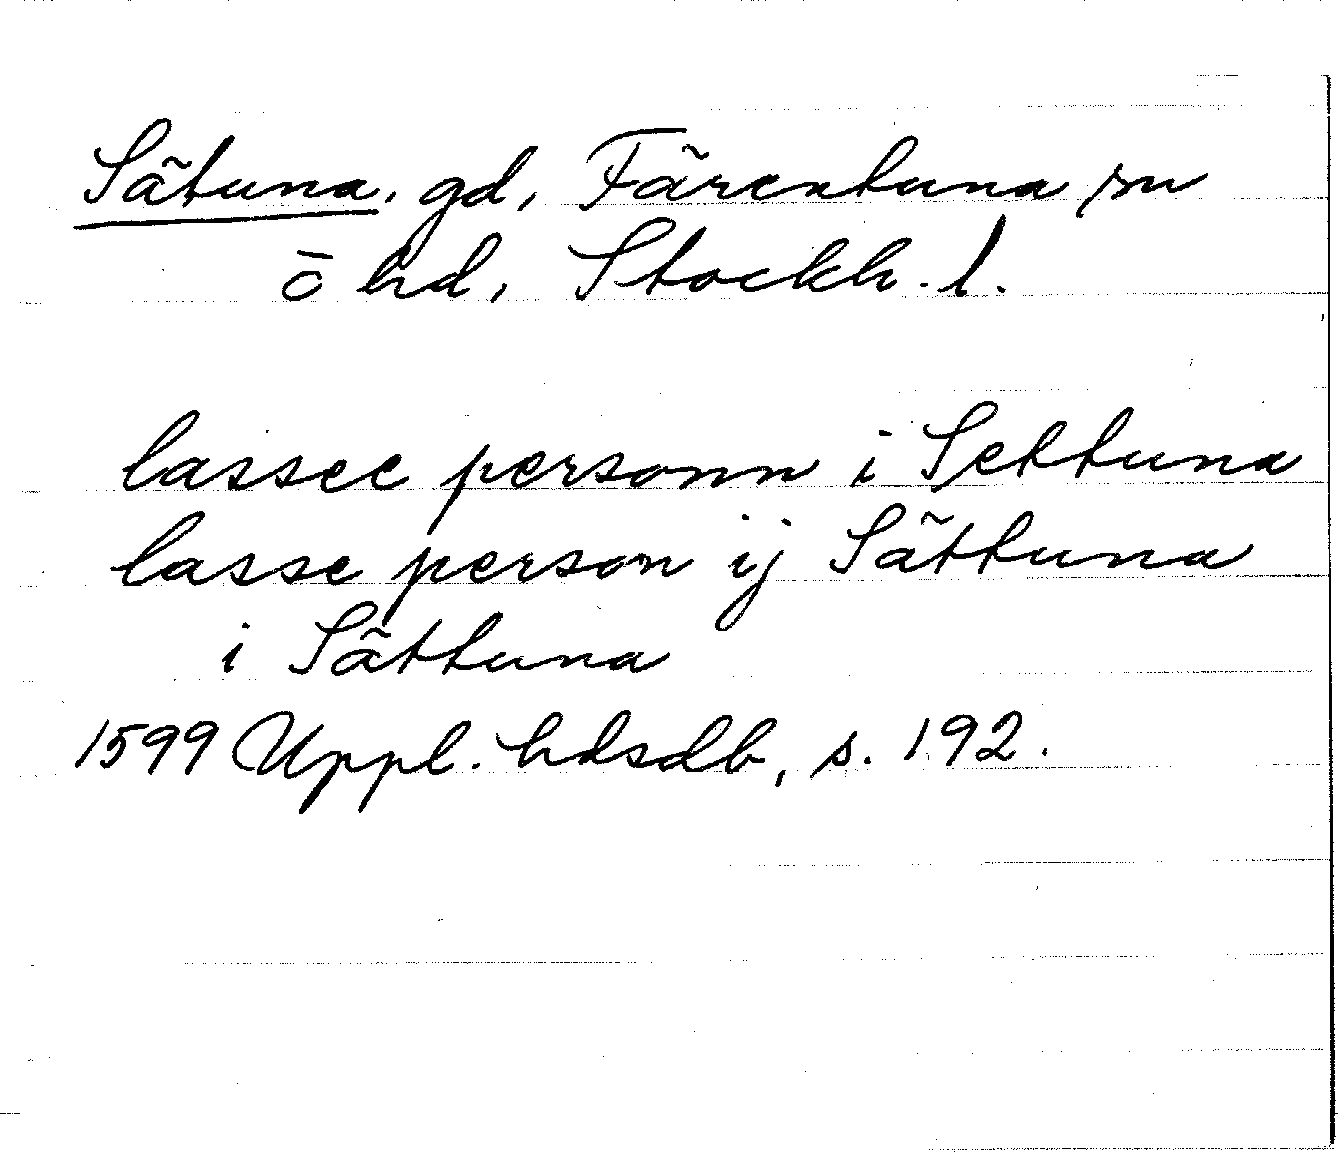 Sätuna, gd, Färentuna sn
o hd, Stockh. l.
lassee personn i Settuna
lasse person ij Sättuna
i Sättuna
1599 Uppl. hdsdb, s. 192.